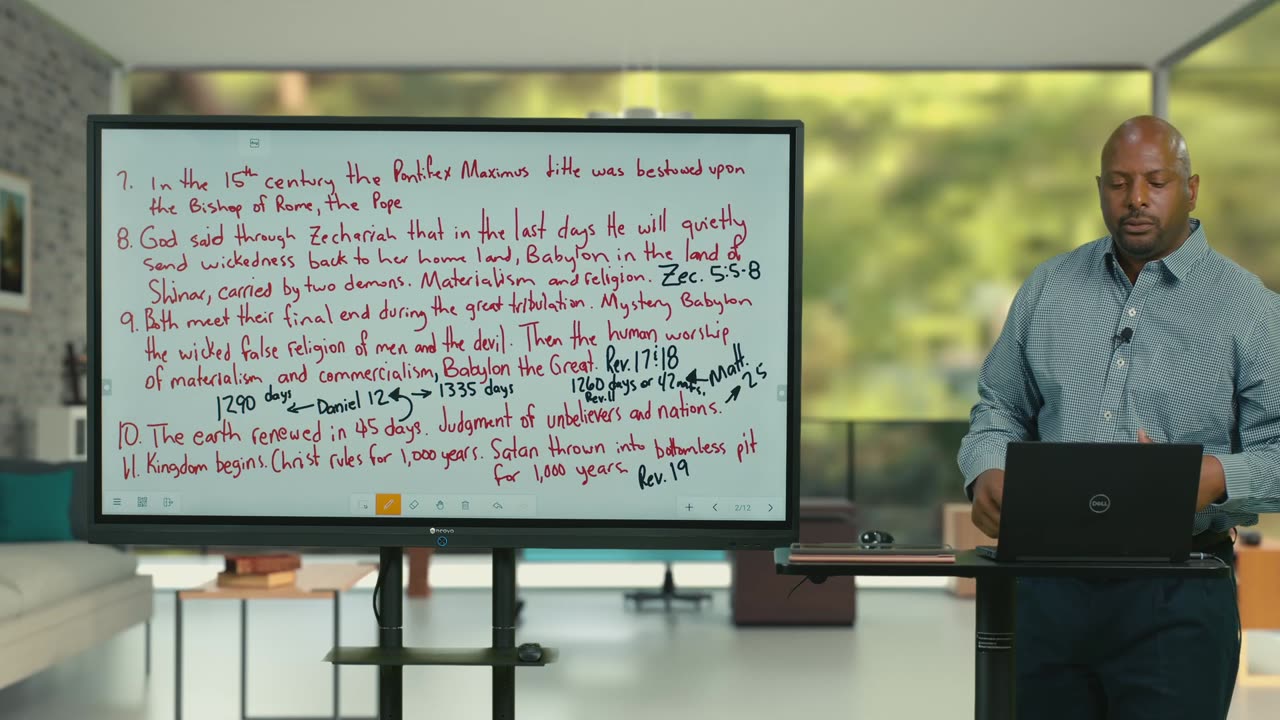 7. In the 15th century the Pontifex Maximus title was bestowed upon
the Bishop of Rome, the Pope
8. God said through Zechariah that in the last days He will quietly
send wickedness back to her home land, Babylon in the land of
Shinar, carried by two demons. Materialism and religion. Zec. 5:5-8
9. Both meet their final end during the great tribulation. Mystery Babylon
the wicked false religion of men and the devil. Then the human worship
of materialism and commercialism, Babylon the Great. Rev. 17:18
1290 days ← Daniel 12 → 1335 days 1260 days or 42 mths. ← Matt. 25
Rev. 11
10. The earth renewed in 45 days. Judgment of unbelievers and nations.
11. Kingdom begins. Christ rules for 1,000 years. Satan thrown into bottomless pit
for 1,000 years. Rev. 19
2/12
neovo
DELL